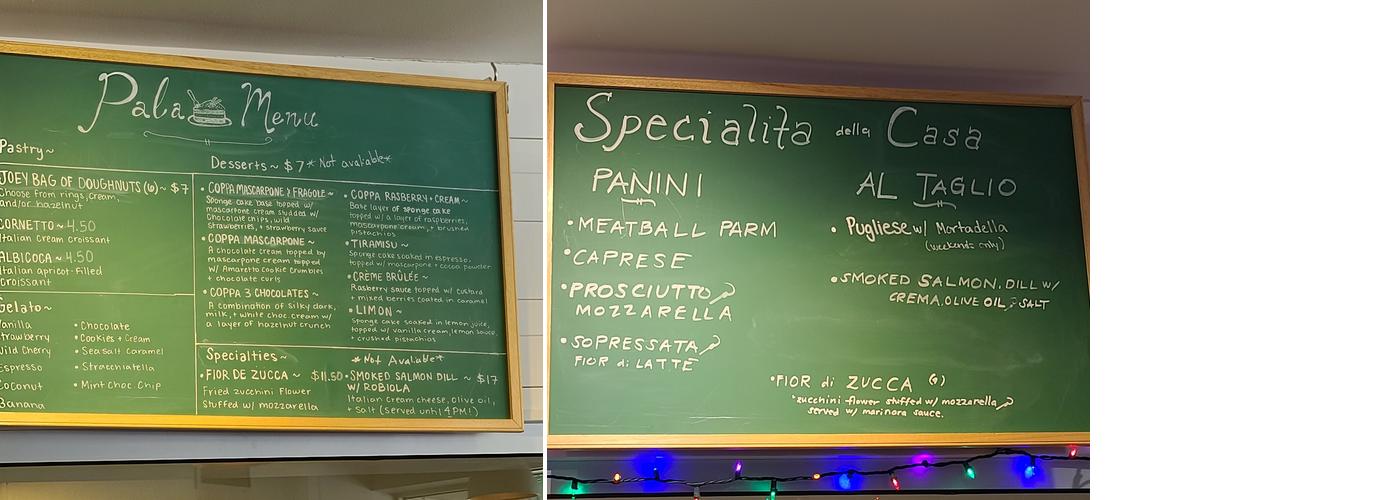 Pala Menu
Pastry~
JOEY BAG OF DOUGHNUTS (6)~ $7
Choose from rings, cream,
and/or hazelnut
CORNETTO ~ 4.50
Italian cream croissant
ALBICOCA ~ 4.50
Italian apricot-filled
croissant
Gelato~
Vanilla
Strawberry
Wild Cherry
Espresso
Coconut
Banana
• Chocolate
• Cookies + Cream
• Sea salt caramel
• Stracchiatella
• Mint Choc. Chip
Desserts ~ $7 *Not avaliable*
• COPPA MASCARPONE & FRAGOLE ~
Sponge cake base topped w/
mascarpone cream studded w/
Chocolate chips, wild
strawberries, + strawberry sauce
• COPPA MASCARPONE ~
A chocolate cream topped by
mascarpone cream topped
w/ Amaretto cookie crumbles
+ chocolate curls
• COPPA 3 CHOCOLATES ~
A combination of silky dark,
milk, + white choc. cream w/
a layer of hazelnut crunch
• COPPA RASBERRY + CREAM ~
Base layer of sponge cake
topped w/ a layer of raspberries,
mascarpone cream, + brushed
pistachios
• TIRAMISU ~
Sponge cake soaked in espresso,
topped w/ mascarpone + cocoa powder
• CRÈME BRÛLÉE ~
Rasberry sauce topped w/ custard
+ mixed berries coated in caramel
• LIMON ~
Sponge cake soaked in lemon juice,
topped w/ vanilla cream, lemon sauce,
+ crushed pistachios
Specialties ~
*Not Avaliable*
• FIOR DE ZUCCA ~ $11.50
Fried zucchini flower
Stuffed w/ mozzarella
• SMOKED SALMON DILL ~ $17
W/ ROBIOLA
Italian cream cheese, olive oil,
+ Salt (served until 4PM!)
Specialita della Casa
PANINI
• MEATBALL PARM
• CAPRESE
• PROSCIUTTO &
MOZZARELLA
• SOPRESSATA &
FIOR di LATTE
AL TAGLIO
• Pugliese w/ Mortadella
(weekends only)
• SMOKED SALMON, DILL W/
CREMA, OLIVE OIL, & SALT
• FIOR di ZUCCA
*zucchini flower stuffed w/ mozzarella &
served w/ marinara sauce.